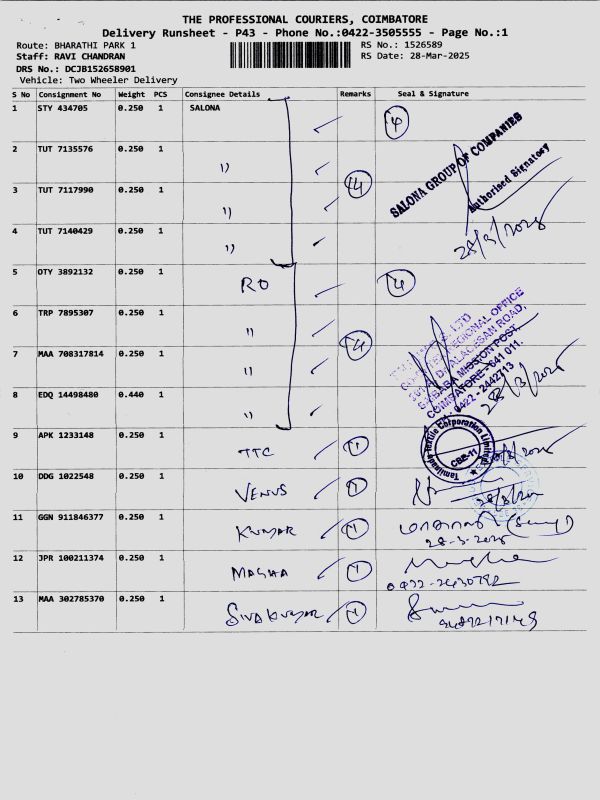 THE PROFESSIONAL COURIERS, COIMBATORE
Delivery Runsheet - P43 - Phone No.:0422-3505555 - Page No.:1
Route: BHARATHI PARK 1
RS No.: 1526589
Staff: RAVI CHANDRAN
RS Date: 28-Mar-2025
DRS No.: DCJB152658901
Vehicle: Two Wheeler Delivery
S No Consignment No Weight PCS Consignee Details Remarks Seal & Signature
1 STY 434705 0.250 1 SALONA ✓ 4
2 TUT 7135576 0.250 1 ') ✓ 4
3 TUT 7117990 0.250 1 ')
4 TUT 7140429 0.250 1 ')
SALONA GROUP OF COMPANIES
Authorised Signatory
28/3/2025
5 OTY 3892132 0.250 1 RO ✓ 4
6 TRP 7895307 0.250 1 " 4
7 MAA 708317814 0.250 1 "
8 EDQ 14498480 0.440 1 "
REGIONAL OFFICE
SAIBABA MISSION POST,
COIMBATORE - 641 011.
0422 - 2442713
28/3/2025
9 APK 1233148 0.250 1 TTC 1
Tamilnadu Textile Corporation Limited
CBE-11
10 DDG 1022548 0.250 1 VENUS ✓ 1
11 GGN 911846377 0.250 1 KUMAR ✓ 1
28-3-2025
12 JPR 100211374 0.250 1 MAGHA ✓ 1
0422-2430792
13 MAA 302785370 0.250 1 Sivakumar ✓ 1